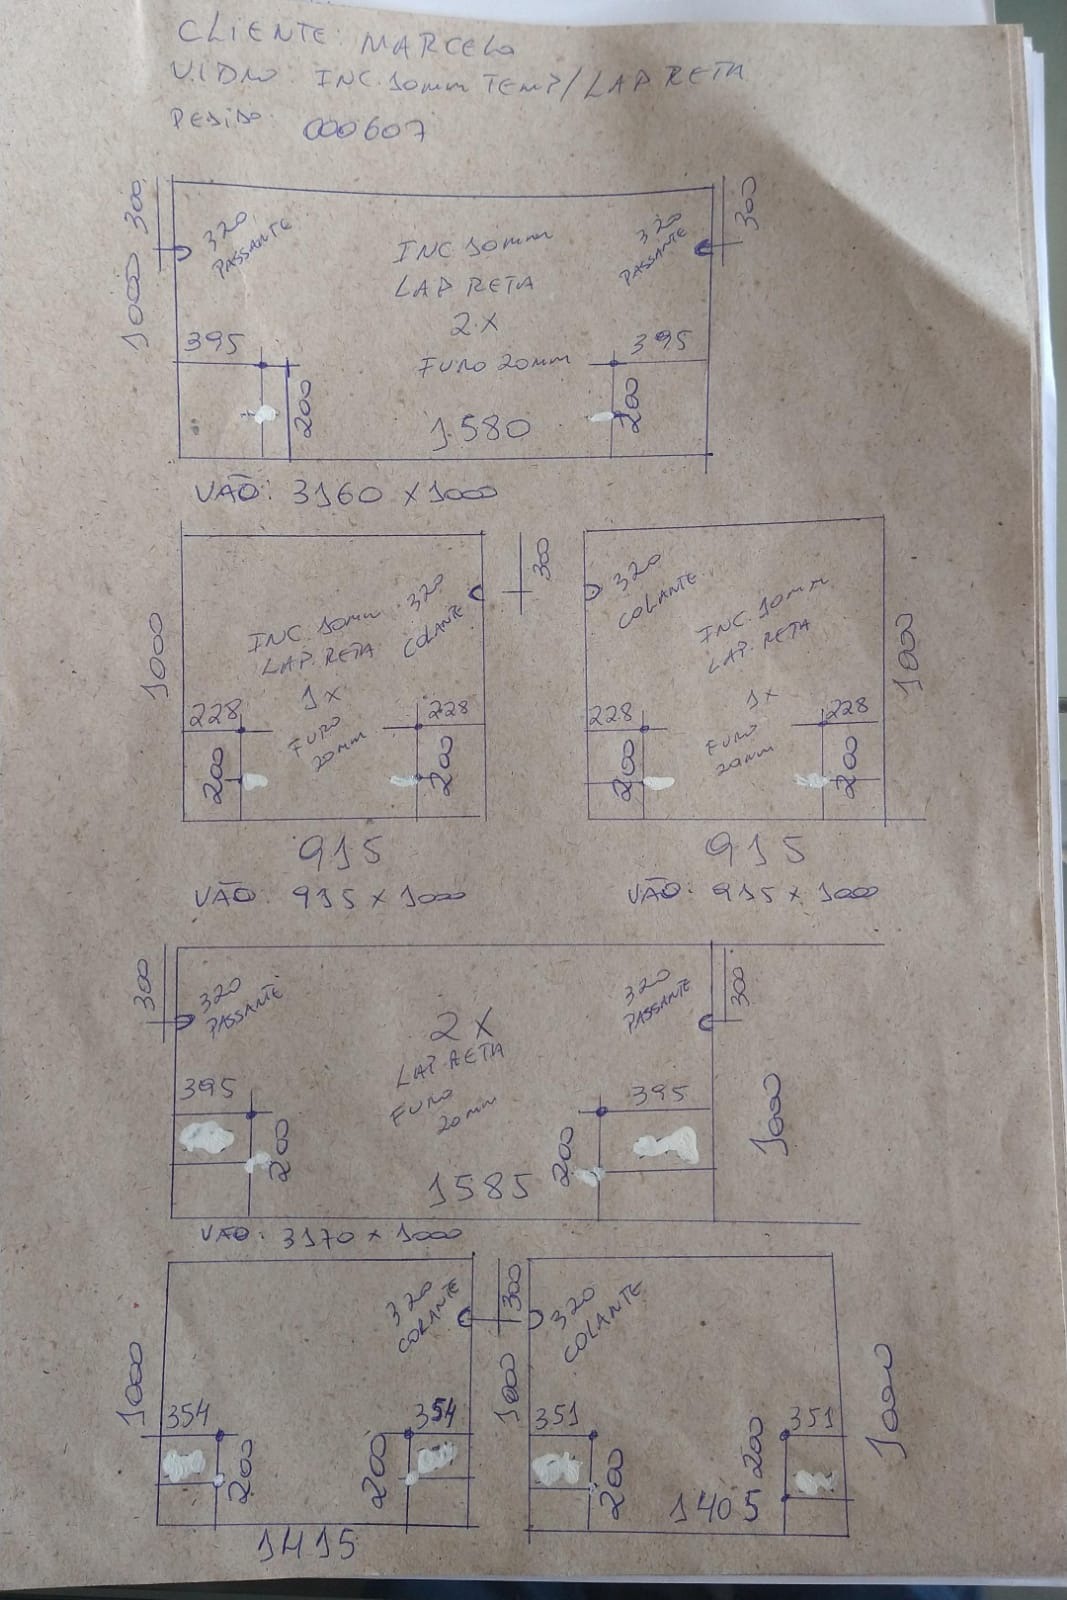 CLIENTE: MARCELO
VIDRO INC. 10mm TEMP/LAP RETA
PEDIDO 000607
300
320 PASSANTE
INC 10mm
LAP RETA
2X
FURO 20mm
320 PASSANTE
300
1000
395
200
395
200
1580
VÃO: 3160 X 1000
INC. 10mm
LAP. RETA
1X
FURO
20mm
320
COLANTE
300
1000
228
200
228
200
915
VÃO: 915 X 1000
320
COLANTE
INC. 10mm
LAP. RETA
1X
FURO
20mm
1000
228
200
228
200
915
VÃO: 915 X 1000
300
320
PASSANTE
2X
LAP. RETA
FURO
20mm
320
PASSANTE
300
395
200
395
200
1000
1585
VÃO: 3170 X 1000
320
COLANTE
300
1000
354
200
354
200
1415
320
COLANTE
1000
351
200
351
200
1000
1405